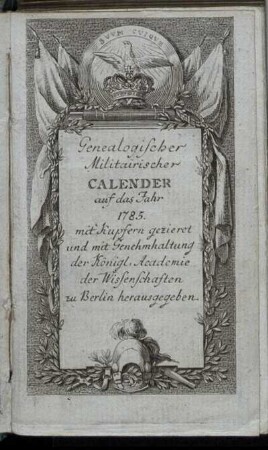 SUUM CUIQUE
Genealogischer
Militairischer
CALENDER
auf das Jahr
1785.
mit Kupfern gezieret
und mit Genehmhaltung
der Königl. Academie
der Wissenschaften
zu Berlin herausgegeben.